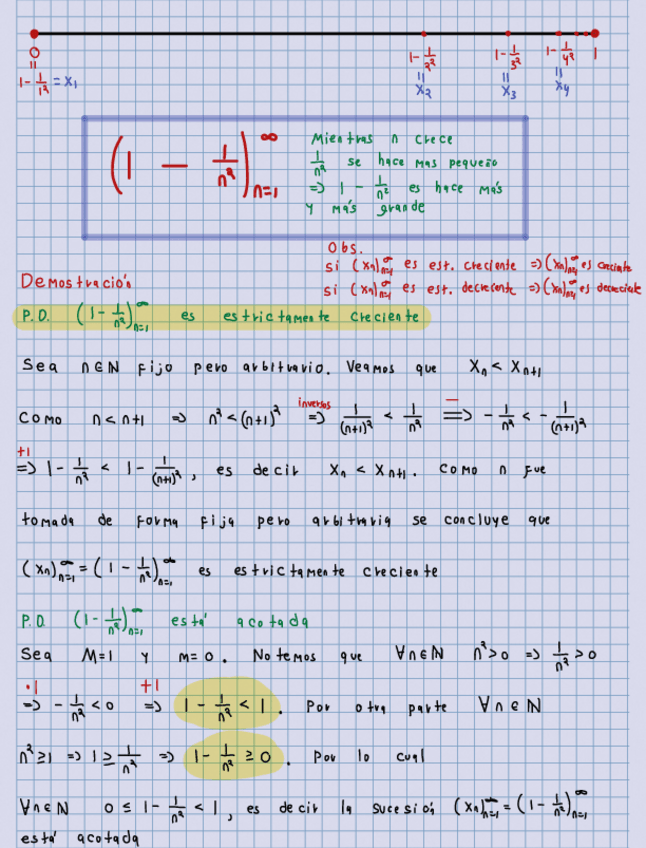 0 1-1/2² 1-1/3² 1-1/4² 1
1-1/1² = x₁ = x₂ = x₃ = x₄
(1 - 1/n²)^∞_{n=1}
Mientras n crece
1/n² se hace mas pequeño
=> 1 - 1/n² es hace más
y más grande
Obs.
si (xₙ)^∞_{n=1} es est. creciente => (xₙ)^∞_{n=1} es creciente
si (xₙ)^∞_{n=1} es est. decreciente => (xₙ)^∞_{n=1} es decreciente
Demostración
P.D. (1 - 1/n²)^∞_{n=1} es estrictamente creciente
Sea n∈ℕ fijo pero arbitrario. Veamos que xₙ < xₙ₊₁
Como n < n+1 => n² < (n+1)² inversos => 1/(n+1)² < 1/n² - => -1/n² < -1/(n+1)²
+1 => 1 - 1/n² < 1 - 1/(n+1)², es decir xₙ < xₙ₊₁. Como n fue
tomada de forma fija pero arbitraria se concluye que
(xₙ)^∞_{n=1} = (1 - 1/n²)^∞_{n=1} es estrictamente creciente
P.D. (1 - 1/n²)^∞_{n=1} está acotada
Sea M=1 y m=0. Notemos que ∀n∈ℕ n²>0 => 1/n² > 0
·1 => -1/n² < 0 +1 => 1 - 1/n² < 1. Por otra parte ∀n∈ℕ
n² ≥ 1 => 1 ≥ 1/n² => 1 - 1/n² ≥ 0. Por lo cual
∀n∈ℕ 0 ≤ 1 - 1/n² < 1, es decir la sucesión (xₙ)^∞_{n=1} = (1 - 1/n²)^∞_{n=1}
está acotada